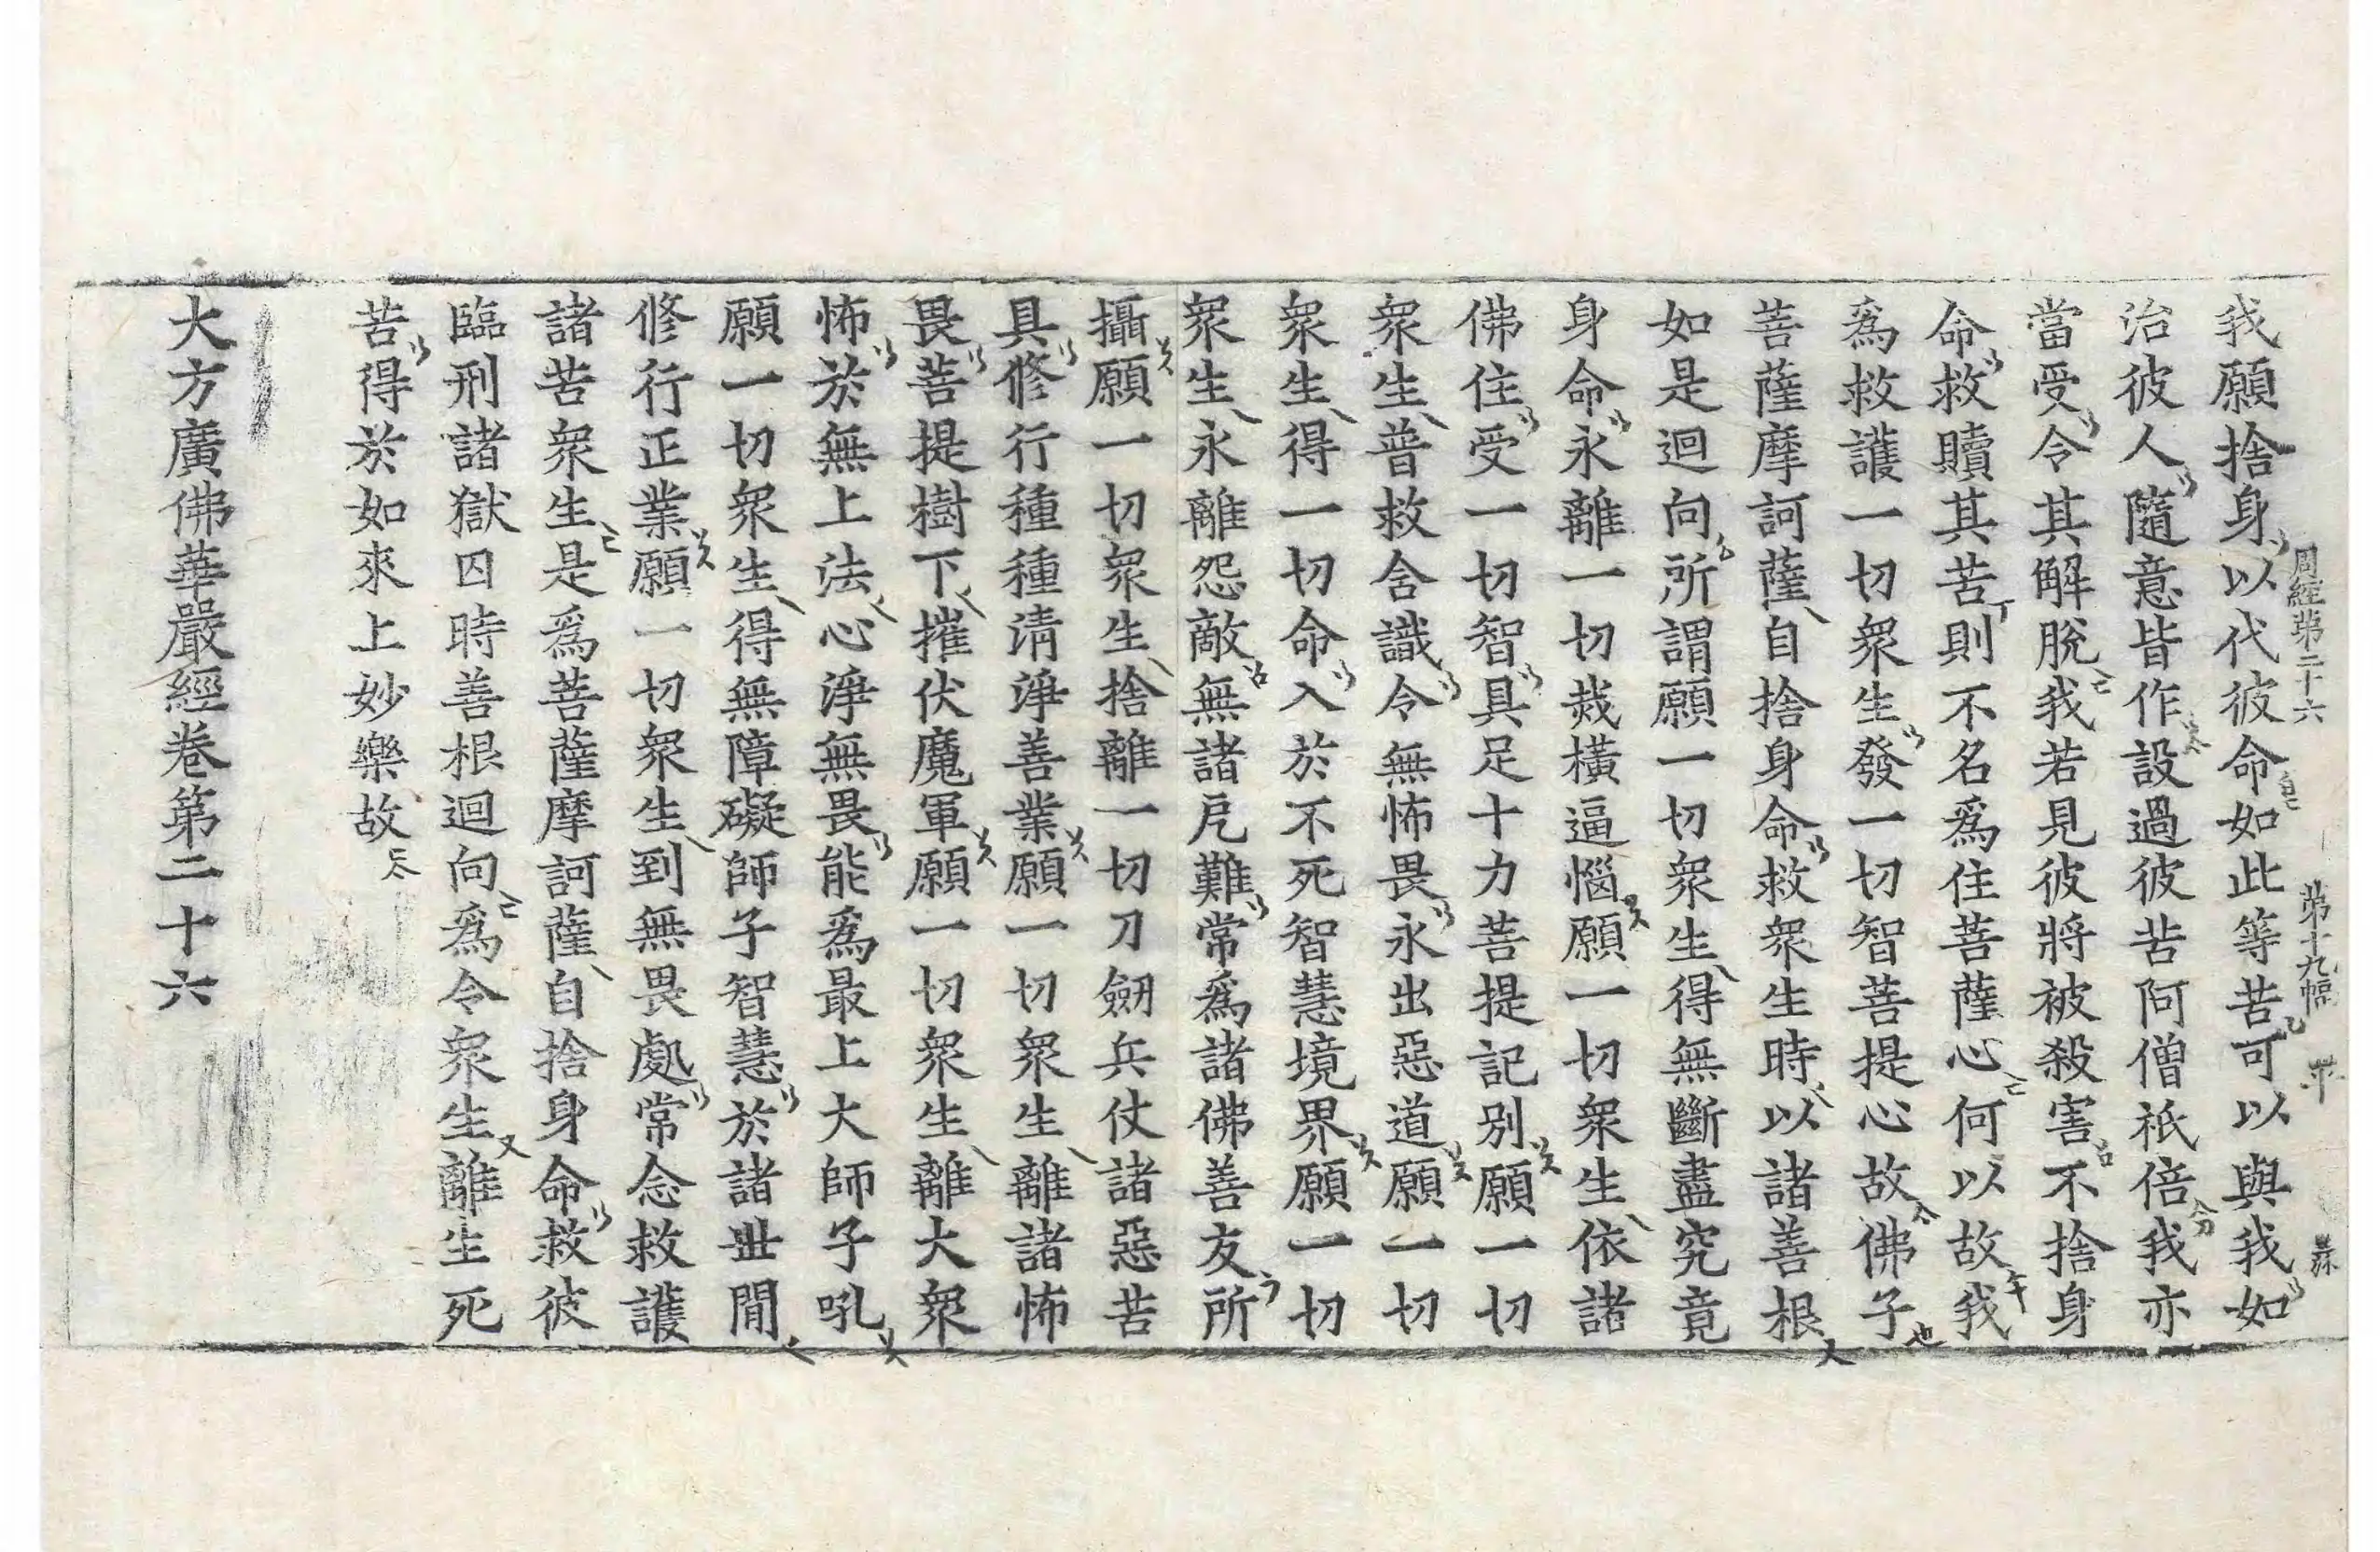 周經第二十六 第十九幅
我願捨身以代彼命如此等苦可以與我如
治彼人隨意皆作設過彼苦阿僧祇倍我亦
當受令其解脫我若見彼將被殺害不捨身
命救贖其苦則不名爲住菩薩心何以故我
爲救護一切衆生發一切智菩提心故佛子
菩薩摩訶薩自捨身命救衆生時以諸善根
如是迴向所謂願一切衆生得無斷盡究竟
身命永離一切烖橫逼惱願一切衆生依諸
佛住受一切智具足十力菩提記別願一切
衆生普救含識令無怖畏永出惡道願一切
衆生得一切命入於不死智慧境界願一切
衆生永離怨敵無諸戹難常爲諸佛善友所
攝願一切衆生捨離一切刀劒兵仗諸惡苦
具修行種種清淨善業願一切衆生離諸怖
畏菩提樹下摧伏魔軍願一切衆生離大衆
怖於無上法心淨無畏能爲最上大師子吼
願一切衆生得無障礙師子智慧於諸世間
修行正業願一切衆生到無畏處常念救護
諸苦衆生是爲菩薩摩訶薩自捨身命救彼
臨刑諸獄囚時善根迴向爲令衆生離生死
苦得於如來上妙樂故
大方廣佛華嚴經卷第二十六